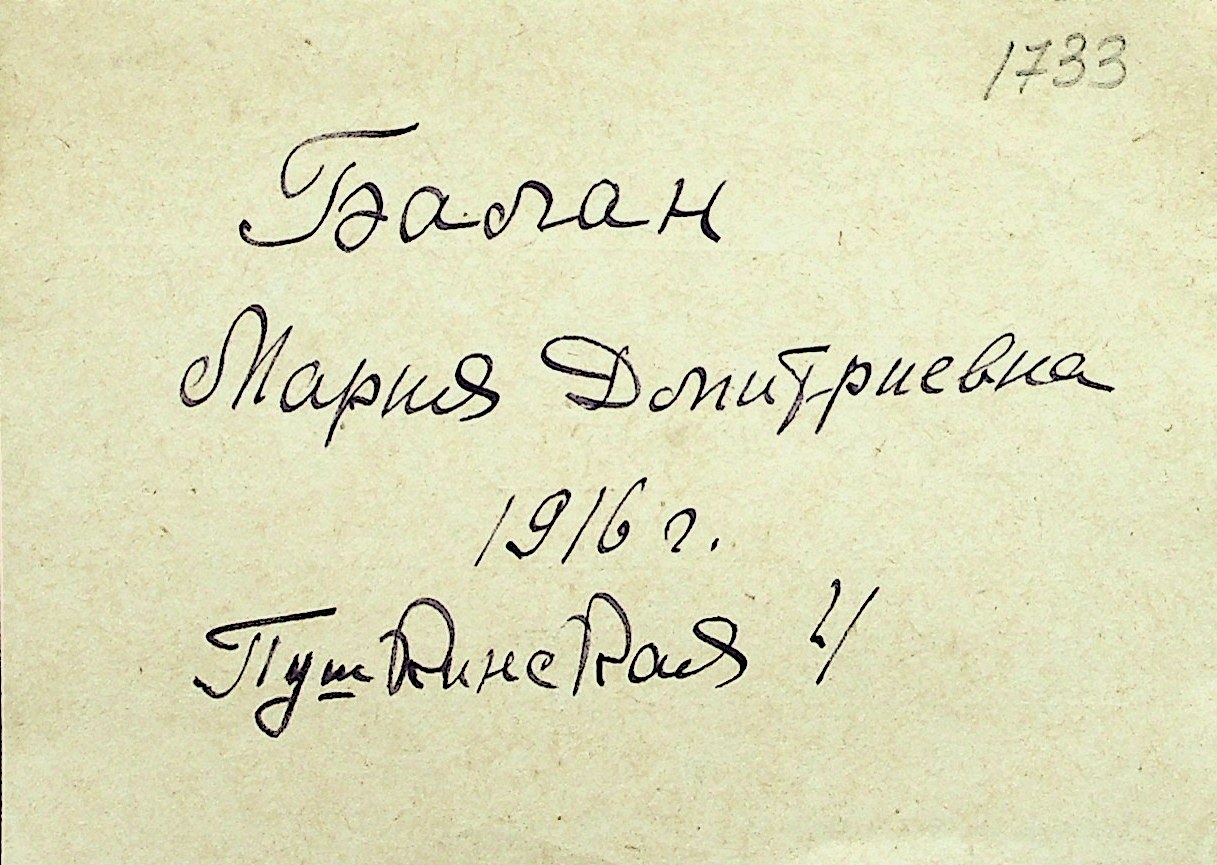 1733
Балан
Мария Дмитриевна
1916 г.
Пушкинская 4